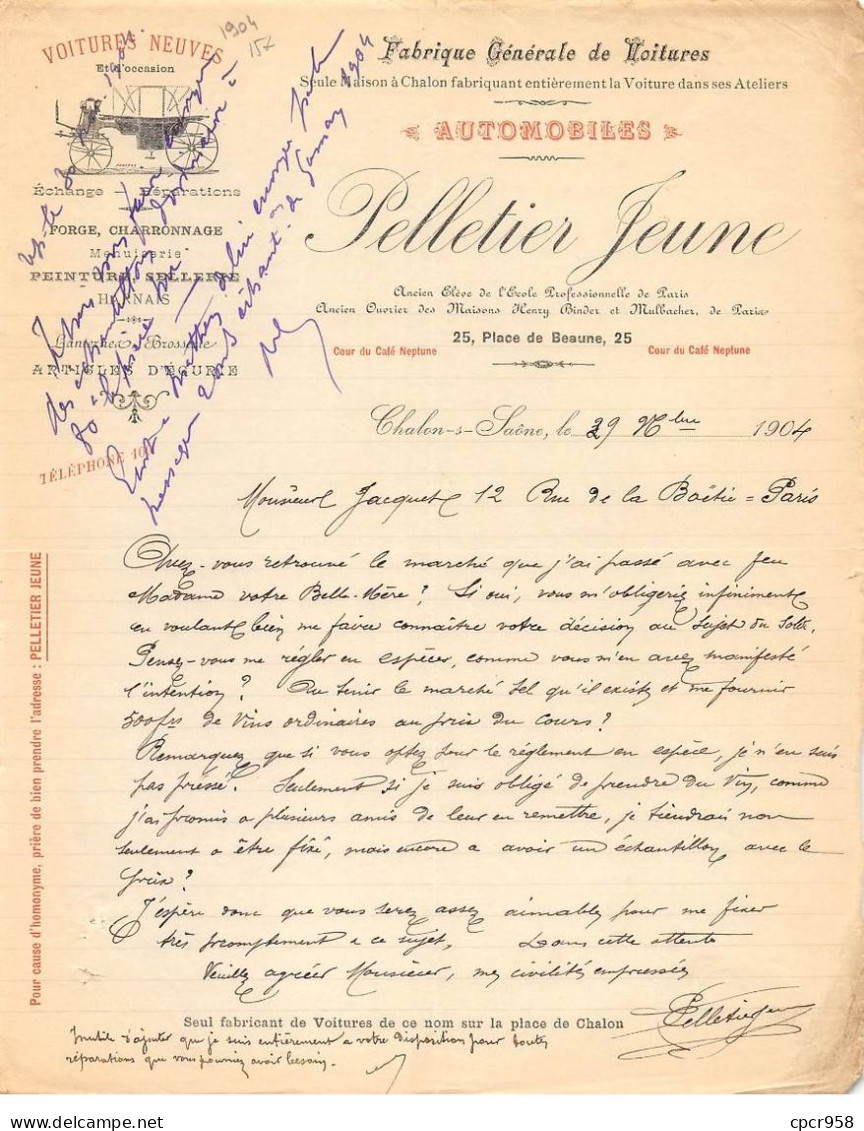 1904
157
VOITURES NEUVES
Et d'occasion
Échange - Réparations
FORGE, CHARRONNAGE
Menuiserie
PEINTURE, SELLERIE
HARNAIS
Lanternes Brosserie
ARTICLES D'ÉCURIE
TÉLÉPHONE
Fabrique Générale de Voitures
Seule Maison à Chalon fabriquant entièrement la Voiture dans ses Ateliers
AUTOMOBILES
Pelletier Jeune
Ancien Élève de l'École Professionnelle de Paris
Ancien Ouvrier des Maisons Henry Binder et Mulbacher, de Paris
25, Place de Beaune, 25
Cour du Café Neptune
Cour du Café Neptune
Chalon-s-Saône, le 29 Xbre 1904
Monsieur Jacquet 12 Rue de la Boëtie = Paris
Avez-vous retrouné le marché que j'ai passé avec feu
Madame votre Belle-Mère? Si oui, vous m'obligeriez infiniment
en voulant bien me faire connaître votre décision au sujet du solde.
Pensez-vous me régler en espèces, comme vous m'en avez manifesté
l'intention? Ou tenir le marché tel qu'il existe et me fournir
500frs de Vins ordinaires au prix du cours?
Remarquez que si vous optez pour le réglement en espèce, je n'en suis
pas pressé. Seulement si je suis obligé de prendre du Vin, comme
j'ai promis a plusieurs amis de leur en remettre, je tiendrais non
seulement a être fixé, mais encore a avoir un échantillon avec le
prix?
J'espère donc que vous serez assez aimables pour me fixer
très promptement a ce sujet, Dans cette attente
Veuillez agréer Monsieur, mes civilités empressées
Pelletier Jeune
Seul fabricant de Voitures de ce nom sur la place de Chalon
Inutile d'ajouter que je suis entièrement a votre Disposition pour toutes
réparations que vous pourriez avoir besoin.
Pour cause d'homonyme, prière de bien prendre l'adresse : PELLETIER JEUNE
cpcr958